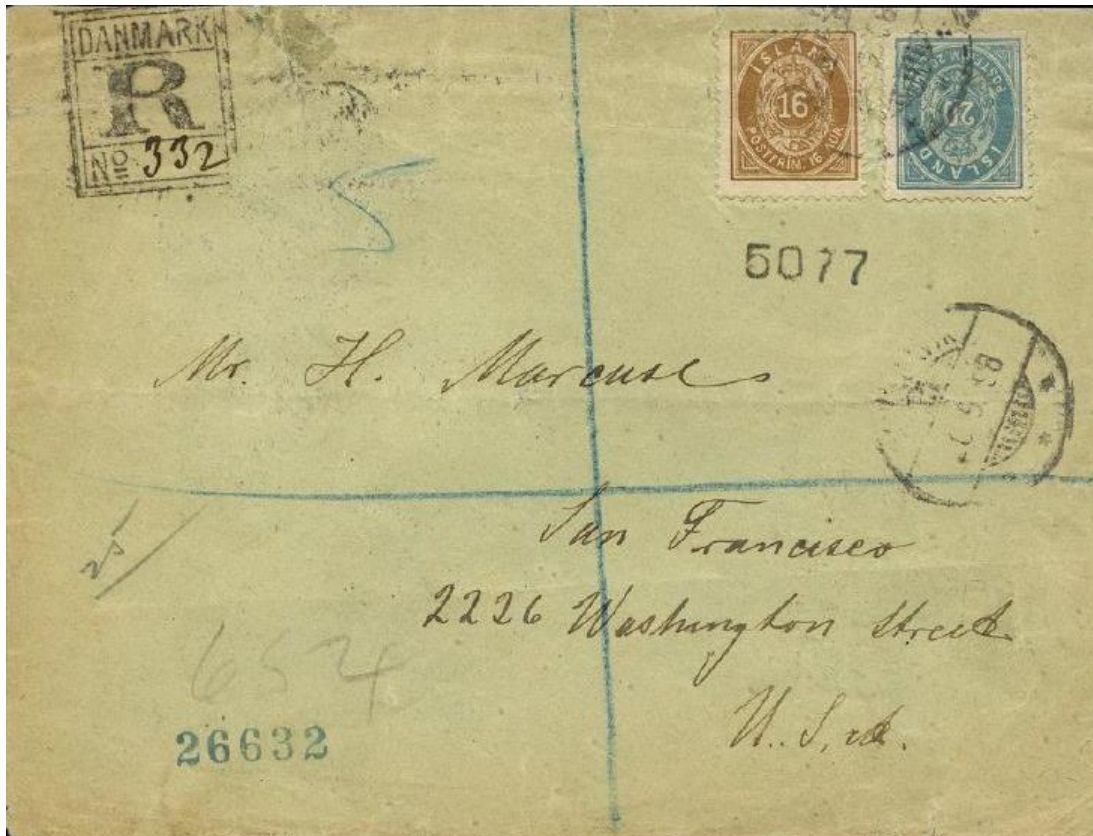 DANMARK
R
No 332
ISLAND
16
POSTFRIM 16 AUR
ISLAND
20
POSTFRIM 20
5077
98
Mr. H. Marcuse
San Francisco
2226 Washington Street
U. S. A.
25
654
26632